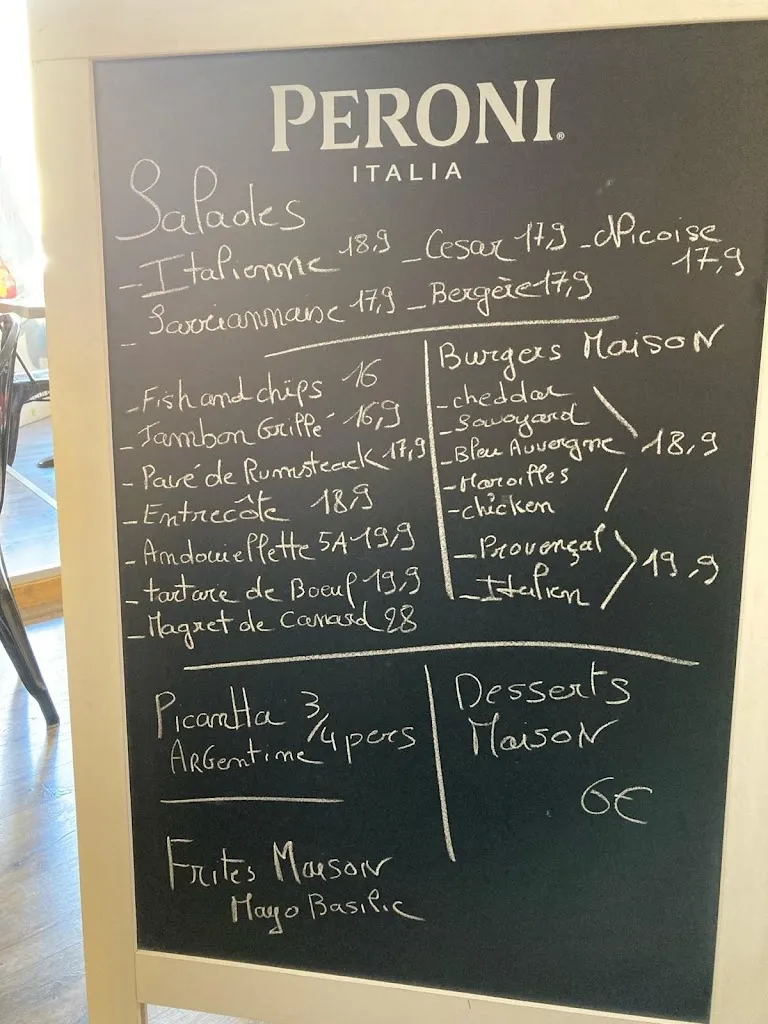 PERONI
ITALIA
Salades
- Italienne 18,9 - Cesar 17,9 - Niçoise 17,9
- Sarriannaise 17,9 - Bergère 17,9
- Fish and chips 16
- Jambon Griffé 16,9
- Pavé de Rumsteack 17,9
- Entrecôte 18,9
- Andouiellette 5A 19,9
- tartare de Boeuf 19,9
- Magret de Canard 28
Burgers Maison
- cheddar
- Savoyard
- Bleu Auvergne 18,9
- Maroilles
- chicken
- Provençal
- Italien 19,9
Picantta 3/4 pers
Argentine
Frites Maison
Mayo Basilic
Desserts
Maison
6€